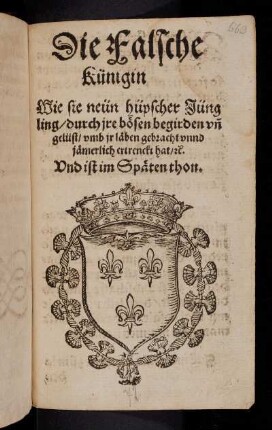 Die Falsche
Künigin
Wie sie neün hüpscher Jüng
ling/ durch jre bösen begirden vñ
gelüst/ vmb jr läben gebracht vnnd
jämerlich ertrenckt hat/ ꝛc.
Vnd ist im Späten thon.